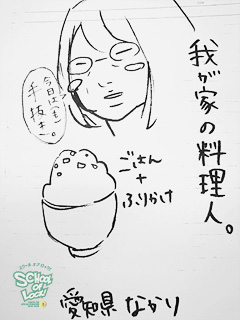 我が家の料理人。
今日はもう
手抜き。
ごはん
+
ふりかけ
SCHOOL
OF
LOCK!
愛知県 なかり